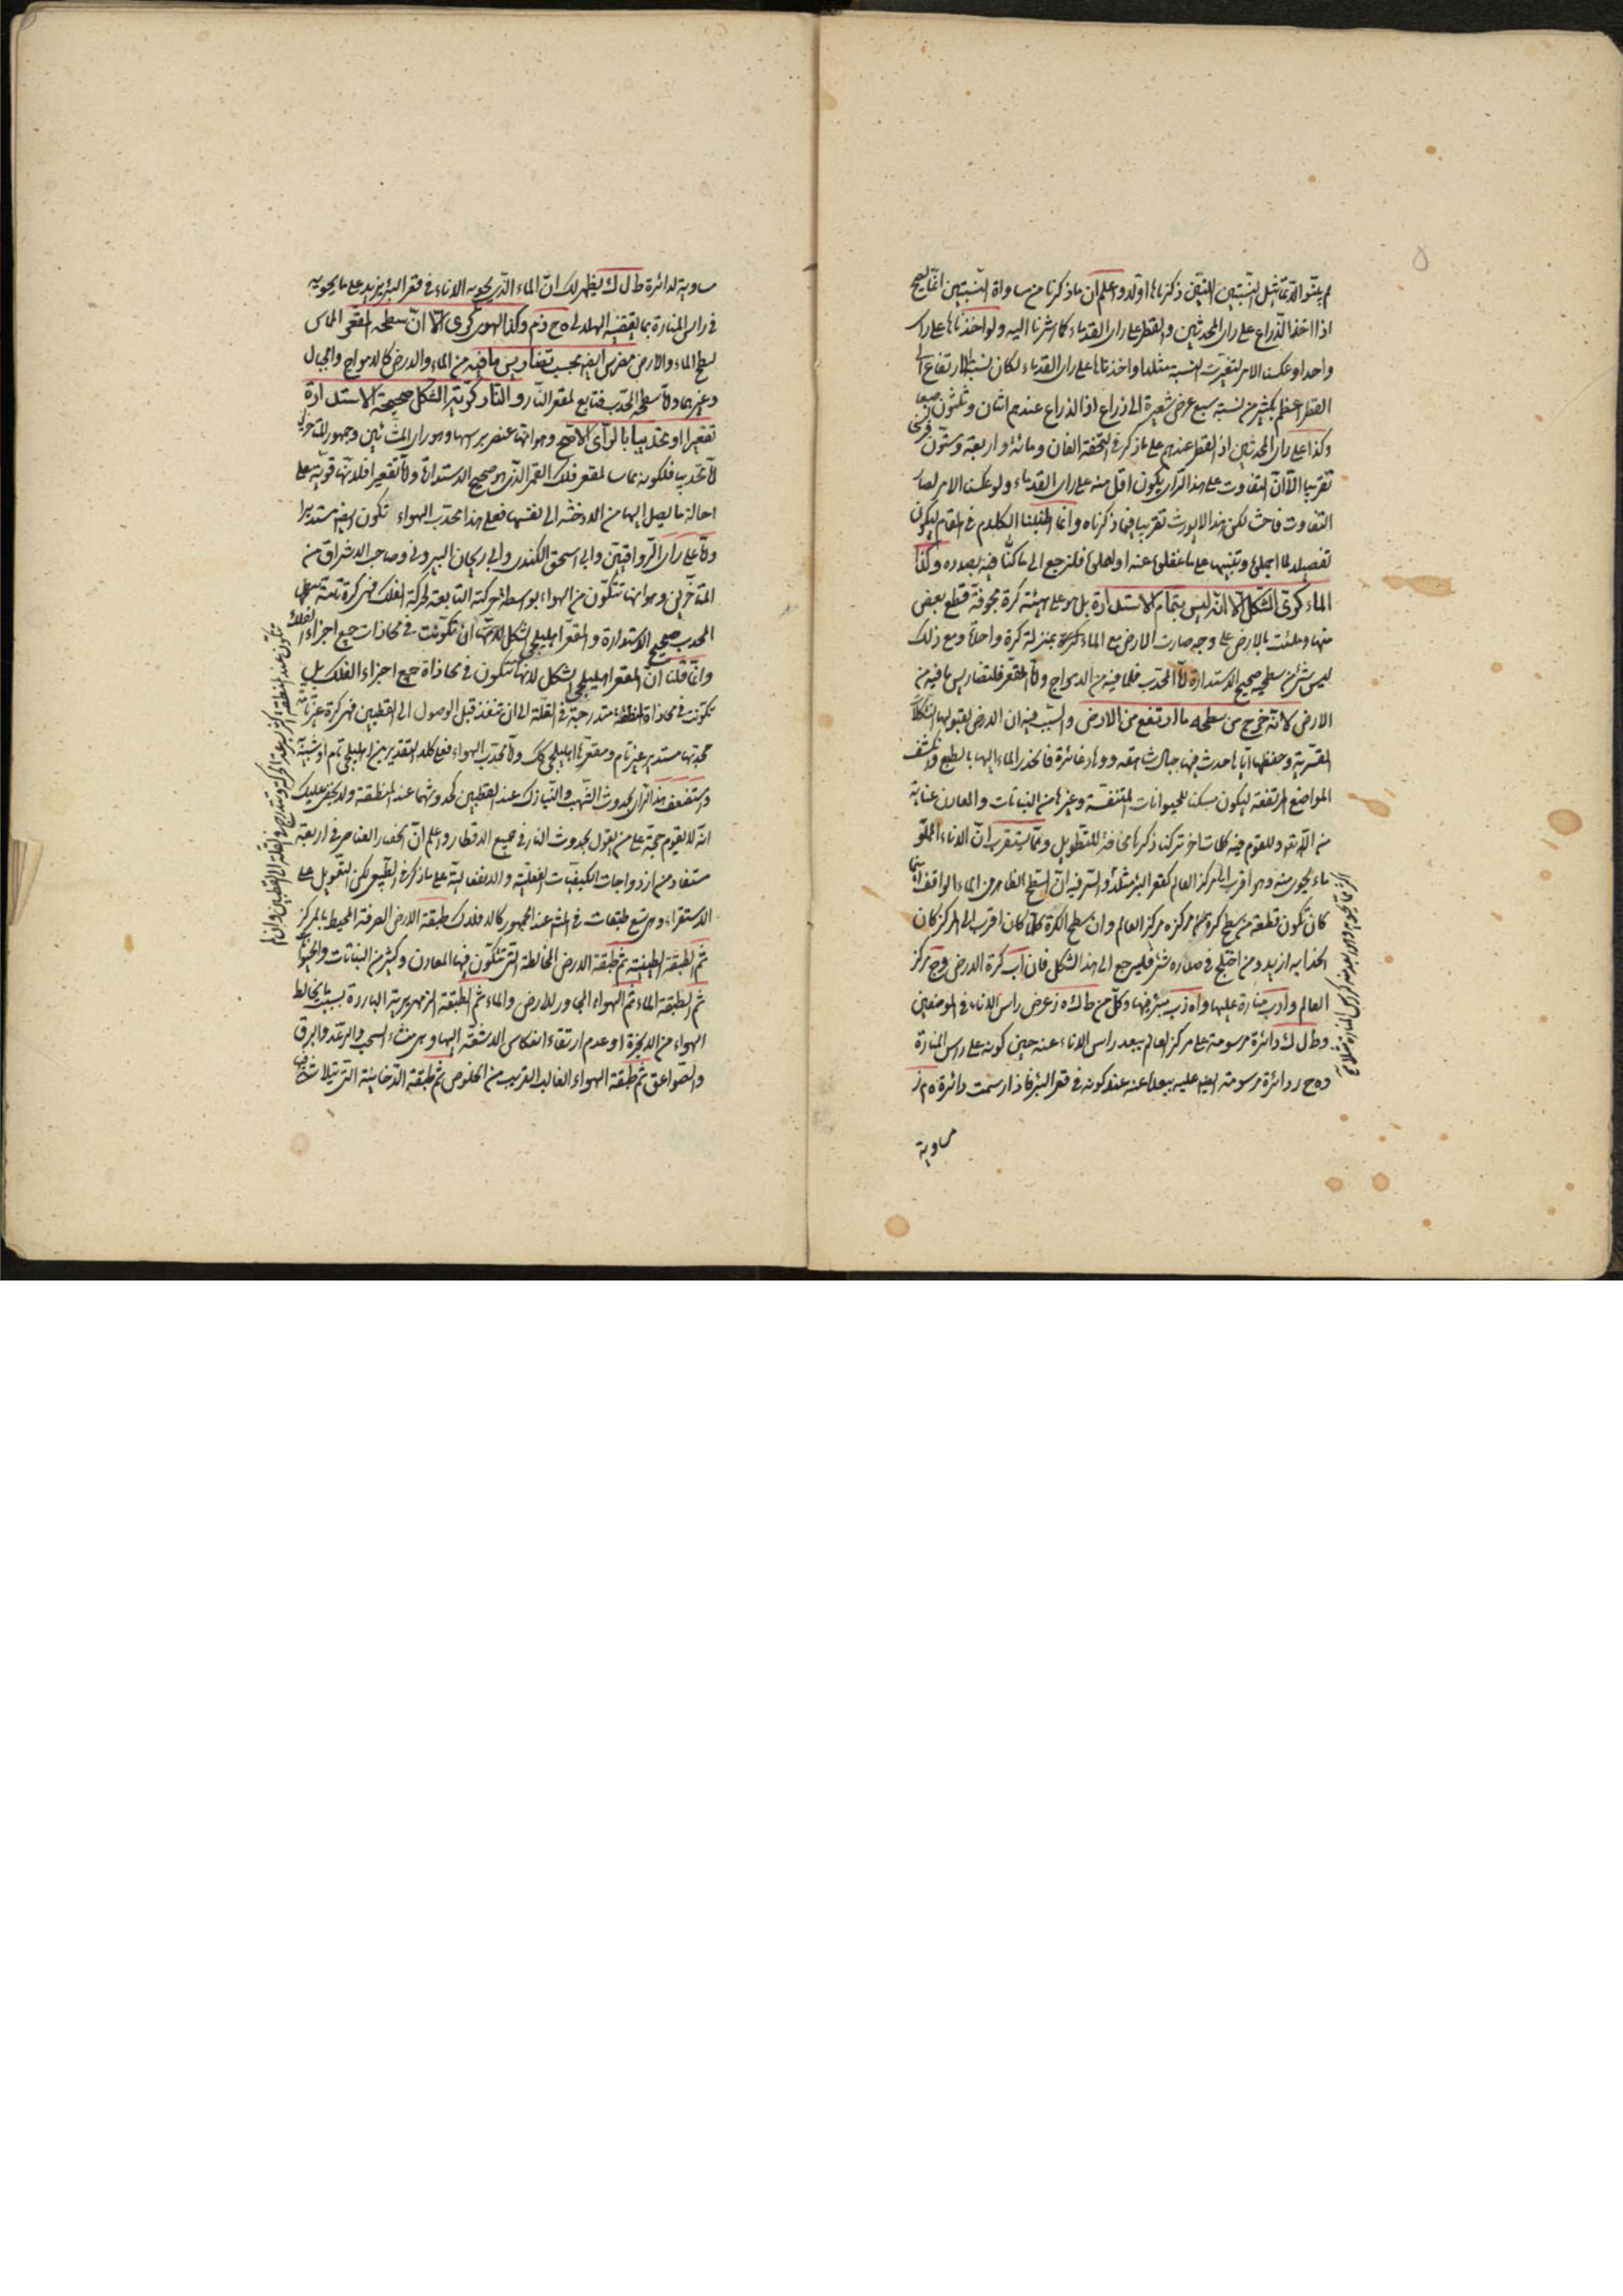 لم يتقو التماثل النسبتين اللتين ذكرناها اولا واعلم ان ما ذكرنا من مساواة النسبتين انما يصح
اذا اخذ الذراع على راى المحدثين والقطر على راى القدماء كما اشرنا اليه ولو اخذناها على راى
واحد او عكسنا الامر لتغيرت النسبة مثلا لو اخذناها على راى القدماء لكان نسبة ارتفاع الى
القطر اعظم بكثير من نسبة سبع عرض شعيرة الى ذراع اذ الذراع عندهم اثنان وثلثون اصبعا
وكذا على راى المحدثين اذ القطر عندهم على ما ذكر فى التحفة الفان ومائة واربعة وستون فرسخا
تقريبا الا ان التفاوت على هذا الراى يكون اقل منه على راى القدماء ولو عكسنا الامر لصار
التفاوت فاحشا لكن هذا لا يورث تقريبا فيما ذكرناه وانما اطنبنا الكلام فى المقام ليكون
تفصيلا لما اجملوا وتنبيها على ما غفلوا عنه او اهملوا فلنرجع الى ما كنا فيه بصدده وكذا
الماء كرى الشكل الا انه ليس بتمام الاستدارة بل هو على هيئة كرة مجوفة قطع بعض
منها وملئت بالارض على وجه صارت الارض مع الماء كرة بمنزلة كرة واحدة ومع ذلك
ليس شئ من سطحيه صحيح الاستدارة اما المحدب فلما فيه من الامواج واما المقعر فلتضاريس ما فيه من
الارض لانه خرج من سطحه ما ارتفع من الارض والسبب فيه ان الارض لقبولها التشكلات
القسرية وحفظها اياها حدث فيها جبال شاهقة ووهاد غائرة فانحدر الماء اليها بالطبع وانكشف
المواضع المرتفعة ليكون مسكنا للحيوانات المتنفسة وغيرها من النباتات والمعادن عناية
من الله تعالى وللقوم فيه كلمات اخر تركنا ذكرها مخافة للتطويل ومما يستغرب ان الاناء المملو
ماء يحوى منه وهو اقرب الى مركز العالم كقعر البئر مثلا والسر فيه ان السطح الظاهر من الماء الواقف اينما
كان تكون قطعة من سطح كرة مركزه مركز العالم وان سطح الكرة كلما كان اقرب الى المركز كان
انحدابه ازيد ومن اختلج فى صدره شئ فليرجع الى هذا الشكل فان اب كرة الارض وج مركز
العالم واد منارة عليها واه زب بئر فيها وكل من طك ه ز عرض راس الاناء فى الموضعين
وط ل ك دائرة مرسومة على مركز العالم ببعد راس الاناء عنه حين كونه على راس المنارة
وه ح ز دائرة مرسومة ايضا عليه ببعدها عنه عند كونه فى قعر البئر فاذا رسمت دائرة ه م ز
مساوية
مساوية لدائرة ط ل ك يظهر لك ان الماء الذى يحويه الاناء فى قعر البئر يزيد على ما يحويه
فى راس المنارة بما يقتضيه الهلالى ه ح ز م وكذا الهواء كرى الا ان سطحه المقعر المماس
لسطح الماء والارض مضرس ايضا بحسب تضاريس ما فيه من الماء والارض كالامواج والجبال
وغيرهما واما سطحه المحدب فتابع لمقعر النار والنار كرية الشكل صحيحة الاستدارة
تقعيرا وتحديبا بالراى الاصح وهو انها عنصر براسها وهو راى المشائين وجمهور المتاخرين
اما تحديبا فلكونه مماسا لمقعر فلك القمر الذى هو صحيح الاستدارة واما تقعيرا فلانها قوية على
احالة ما يصل اليها من الادخنة الى نفسها فعلى هذا محدب الهواء تكون ايضا مستديرا
واما على راى الرواقيين وابى اسحق الكندى وابى ريحان البيرونى وصاحب الاشراق من
المتاخرين وهو انها تتكون من الهواء بواسطة حركته التابعة لحركة الفلك فهى كرة تامة سطحها
المحدب صحيح الاستدارة والمقعر اهليلجى الشكل لانها ان تكونت فى محاذات جميع اجزاء الفلك
وان قلنا ان المقعر اهليلجى الشكل لانها تتكون فى محاذاة جميع اجزاء الفلك بل
تكونت فى محاذاة المنطقة متدرجة فى القلة الى ان تنفد قبل الوصول الى القطبين فهى كرة غير تامة
محدبها مستدير غير تام ومقعرها اهليلجى كك واما محدب الهواء فعلى كلا التقديرين اهليلجى تام او شبيه
واستضعف هذا الراى بحدوث الشهب والنيازك عند القطبين كحدوثهما عند المنطقة ولا يخفى عليك
انه لا يقوم حجة على من يقول بحدوث النار فى جميع الاقطار واعلم ان انحصار العناصر فى اربعة
مستفاد من ازدواجات الكيفيات الفعلية والانفعالية على ما ذكر فى الطبيعى لكن التعويل على
الاستقراء وهى تسع طبقات فى المشهور عند الجمهور كالافلاك طبقة الارض الصرفة المحيط بالمركز
ثم الطبقة الطينية ثم طبقة الارض المخالطة التى تتكون فيها المعادن وكثير من النباتات والحيوانات
ثم طبقة الماء ثم الهواء المجاور للارض والماء ثم الطبقة الزمهريرية الباردة بسبب ما يخالط
الهواء من الابخرة وعدم ارتقاء انعكاس الاشعة اليها وهى منشاء السحب والرعد والبرق
والصواعق ثم طبقة الهواء الغالب القريب من الخلوص ثم طبقة الدخانية التى يتلاشى فيها